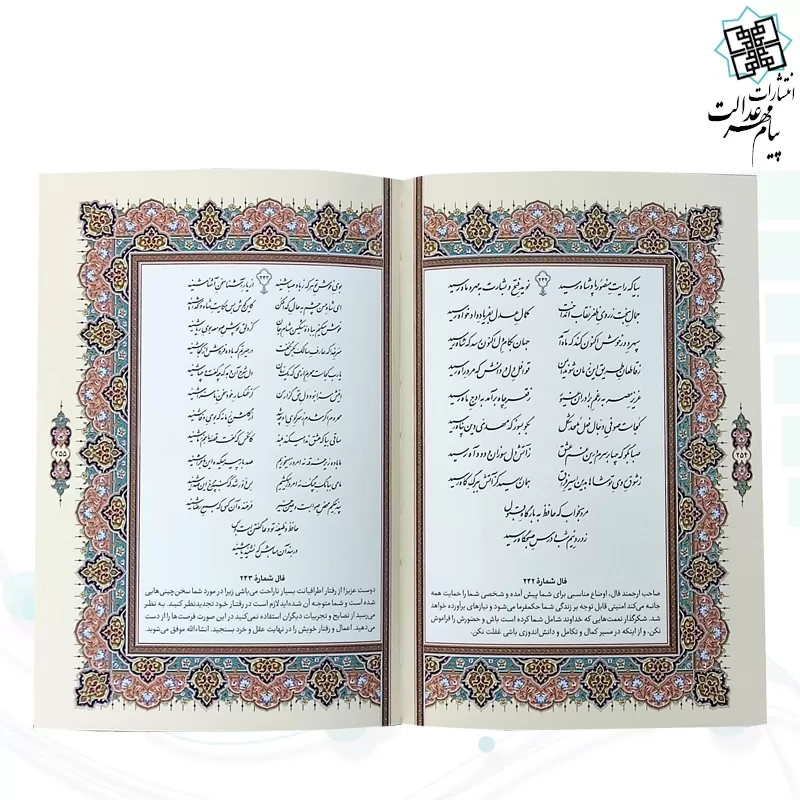 انتشارات
پیام مهر عدالت
۲۳۲
بیا که رایت منصور پادشاه رسید نوید فتح و بشارت به مهر و ماه رسید
جمال بخت ز روی ظفر نقاب انداخت کمال عدل به فریاد دادخواه رسید
سپهر دور خوش اکنون کند که ماه آمد جهان به کام دل اکنون رسد که شاه رسید
ز قاطعان طریق این زمان شوند ایمن قوافل دل و دانش که مرد راه رسید
عزیز مصر به رغم برادران غیور ز قعر چاه برآمد به اوج ماه رسید
کجاست صوفی دجال فعل ملحد شکل بگو بسوز که مهدی دین پناه رسید
صبا بگو که چه‌ها بر سرم درین غم عشق ز آتش دل سوزان و دود آه رسید
ز شوق روی تو شاها بدین اسیر فراق همان رسید کز آتش به برگ کاه رسید
مرو به خواب که حافظ به بارگاه قبول
ز ورد نیم شب و درس صبحگاه رسید
فال شمارهٔ ۲۳۲
صاحب ارجمند فال، اوضاع مناسبی برای شما پیش آمده و شخصی شما را حمایت همه
جانبه می‌کند امنیتی قابل توجه بر زندگی شما حکمفرما می‌شود و نیازهای برآورده خواهد
شد. شکرگذار نعمت‌هایی که خداوند شامل شما کرده است باش و حضورش را فراموش
نکن. و از اینکه در مسیر کمال و تکامل و دانش‌اندوزی باشی غفلت نکن.
۲۵۴
۲۳۳
بوی خوش تو هر که ز باد صبا شنید از یار آشنا سخن آشنا شنید
ای شاه حسن چشم به حال گدا فکن کاین گوش بس حکایت شاه و گدا شنید
خوش می‌کنم به باده مشکین مشام جان کز دلق پوش صومعه بوی ریا شنید
سر خدا که عارف سالک به کس نگفت در حیرتم که باده فروش از کجا شنید
یا رب کجاست محرم رازی که یک زمان دل شرح آن دهد که چه گفت و چه‌ها شنید
اینش سزا نبود دل حق گزار من کز غمگسار خود سخن ناسزا شنید
محروم اگر شدم ز سر کوی او چه شد از گلشن زمانه که بوی وفا شنید
ساقی بیا که عشق ندا می‌کند بلند کان کس که گفت قصه ما هم ز ما شنید
ما باده زیر خرقه نه امروز می‌خوریم صد بار پیر میکده این ماجرا شنید
ما می به بانگ چنگ نه امروز می‌کشیم بس دور شد که گنبد چرخ این صدا شنید
پند حکیم محض صواب است و عین خیر فرخنده آن کسی که به سمع رضا شنید
حافظ وظیفه تو دعا گفتن است و بس
دربند آن مباش که نشنید یا شنید
فال شمارهٔ ۲۳۳
دوست عزیز! از رفتار اطرافیانت بسیار ناراحت می باشی زیرا در مورد شما سخن‌چینی‌هایی
شده است و شما متوجه آن شده‌اید لازم است در رفتار خود تجدیدنظر کنید. به نظر
می‌رسید از نصایح و تجربیات دیگران استفاده نمی‌کنید در این صورت فرصت‌ها را از دست
می‌دهید. اعمال و رفتار خویش را در نهایت عقل و خرد بسنجید. انشاءالله موفق می‌شوید.
۲۵۵